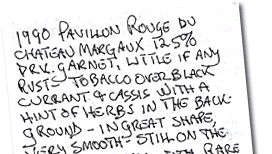 1990 PAVILLON ROUGE DU
CHATEAU MARGAUX 12.5%
DRK. GARNET, LITTLE IF ANY
RUST- TOBACCO OVER BLACK
CURRANT & CASSIS WITH A
HINT OF HERBS IN THE BACK-
GROUND - IN GREAT SHAPE,
VERY SMOOTH- STILL ON THE
WITH RARE